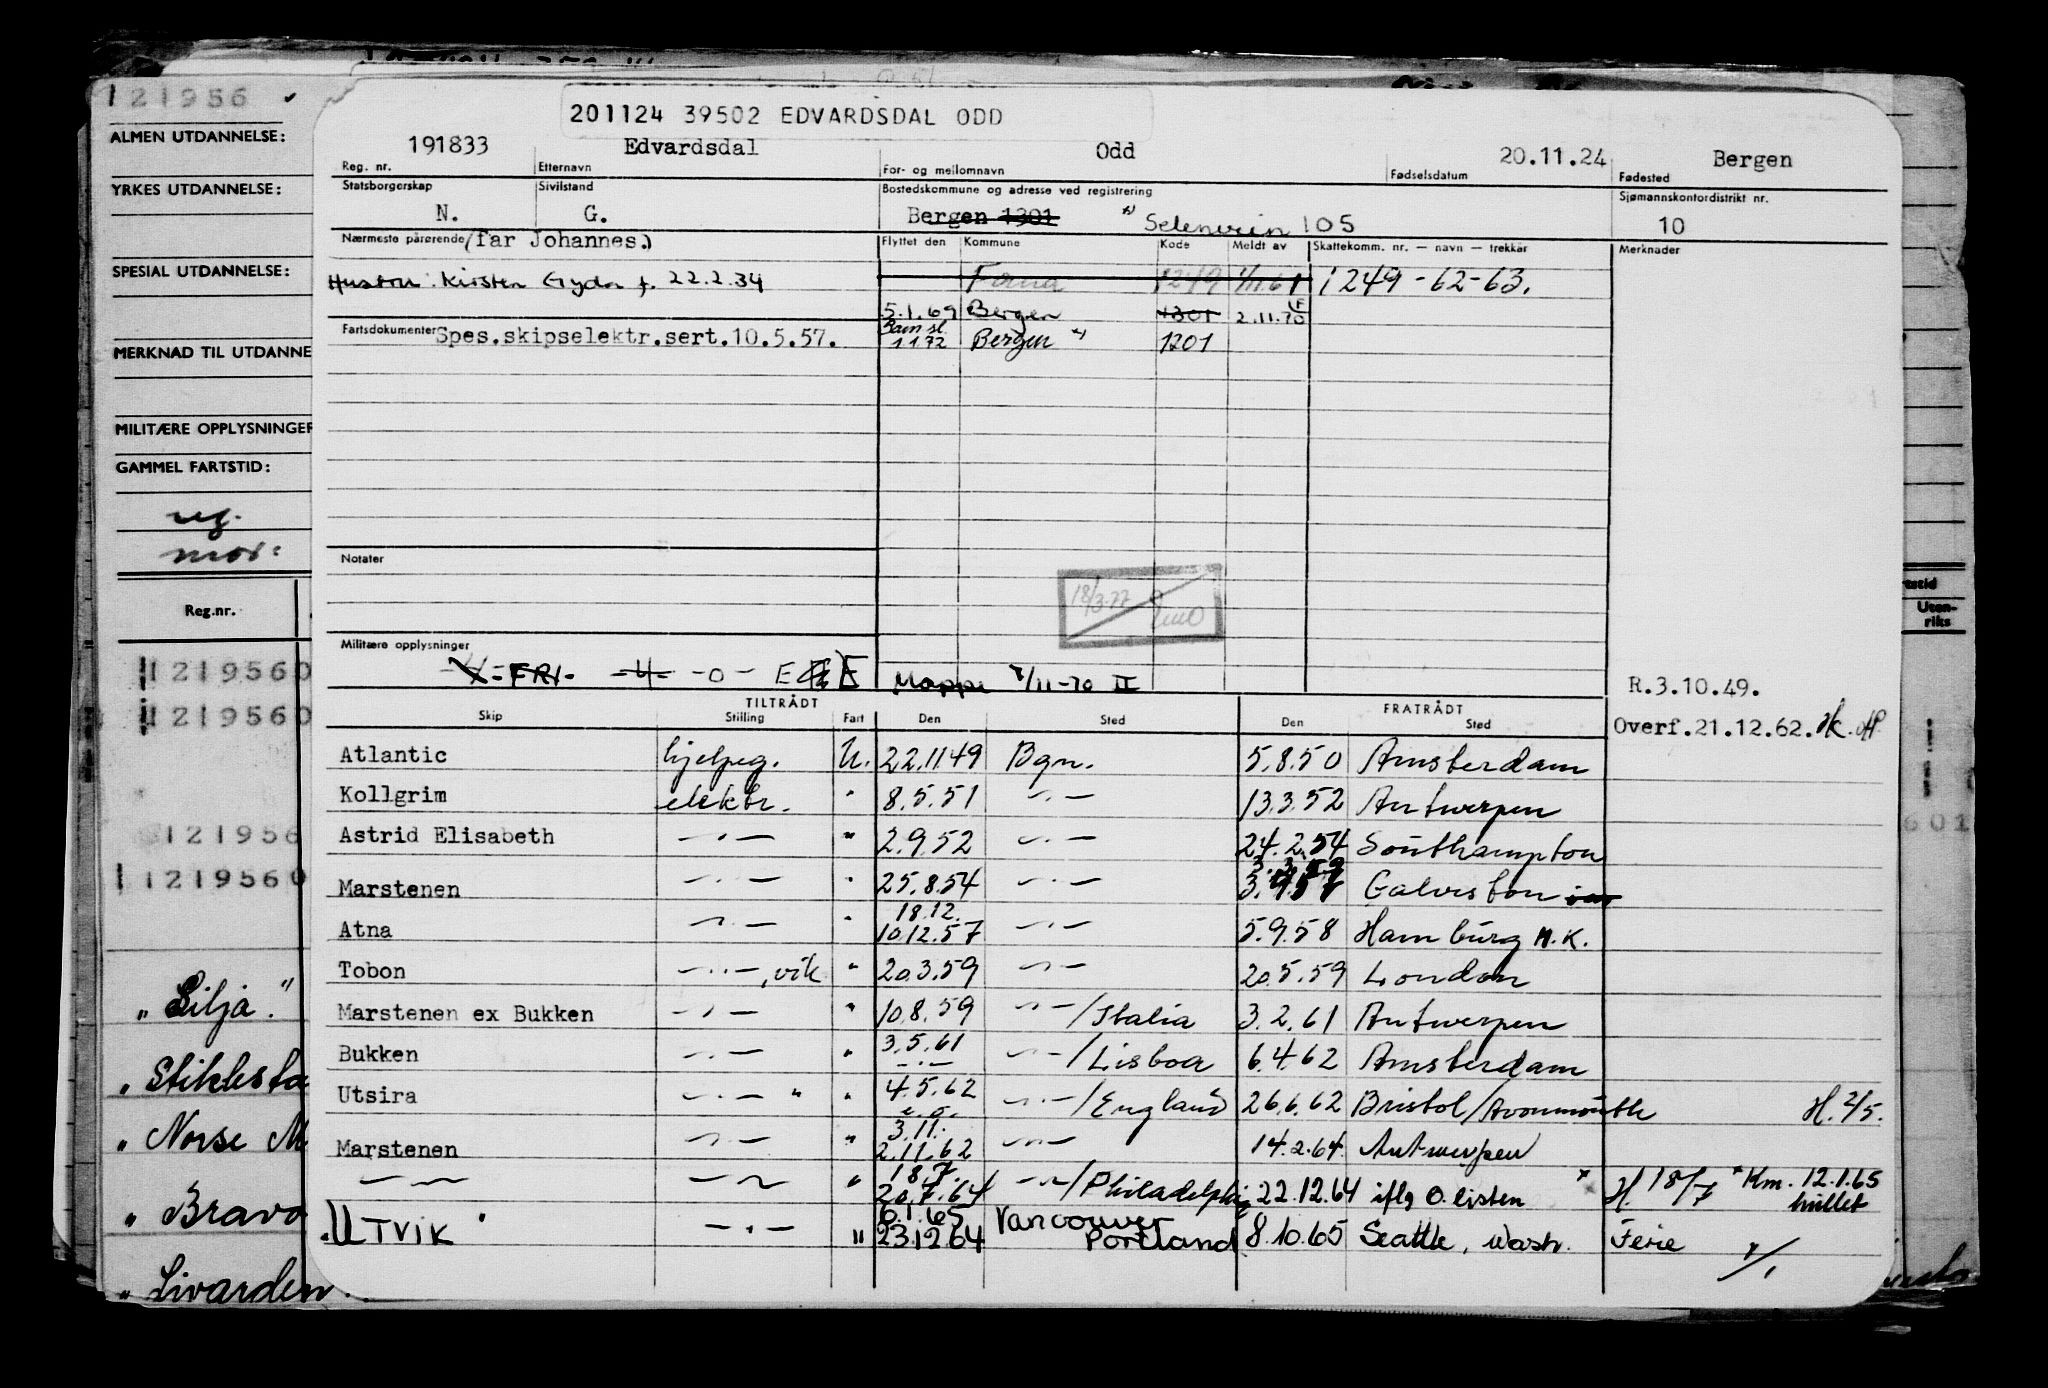 121956
ALMEN UTDANNELSE:
YRKES UTDANNELSE:
SPESIAL UTDANNELSE:
MERKNAD TIL UTDANNE
MILITÆRE OPPLYSNINGER
GAMMEL FARTSTID:
Reg.nr.
1219560
1219560
121956
1219560
„Silja."
„Stiklesta
„Norse M
„Bravo
„Livarden
201124 39502 EDVARDSDAL ODD
191833 Edvardsdal Odd 20.11.24 Bergen
Reg. nr. Etternavn For- og mellomnavn Fødselsdatum Fødested
Statsborgerskap Sivilstand Bostedskommune og adresse ved registrering Sjømannskontordistrikt nr.
N. G. Bergen 1301 Selenveien 105 10
Nærmeste pårørende (far Johannes.) Flyttet den Kommune Kode Meldt av Skattekomm. nr. — navn — trekkår Merknader
Hustru: Kirsten Gyda f. 22.2.34 Fana 1249 1/11.61 1249-62-63.
5.1.69 Bergen 1301 2.11.70
Fartsdokumenter Spes.skipselektr.sert.10.5.57. 1.1.72 Bergen 1201
Notater
18/3-77
Militære opplysninger
FRI. -4- -0- E Mappe 7/11-70 II
R.3.10.49.
TILTRÅDT FRATRÅDT
Skip Stilling Fart Den Sted Den Sted
Overf.21.12.62.
Atlantic hjelpeg. U. 22.11.49 Bgn. 5.8.50 Amsterdam
Kollgrim elektr. " 8.5.51 —"— 13.3.52 Antwerpen
Astrid Elisabeth —"— " 2.9.52 —"— 24.2.54 Southampton
Marstenen —"— " 25.8.54 —"— Galveston
18.12.
Atna —"— " 10.12.57 —"— 5.9.58 Hamburg M.K.
Tobon —"—, vik " 20.3.59 —"— 20.5.59 London
Marstenen ex Bukken —"— " 10.8.59 —"—/Italia 3.2.61 Antwerpen
Bukken —"— " 3.5.61 —"—/Lisboa 6.4.62 Amsterdam
Utsira —"— " " 4.5.62 —"—/England 26.6.62 Bristol/Avonmouth H. 2/5.
3.11.
Marstenen —"— " 2.11.62 —"— 14.2.64. Antwerpen
18.7.
—"— —"— " 20.7.64 —"—/Philadelphia 22.12.64 iflg O.listen x H. 18/7 x Km. 12.1.65
hullet
6.1.65 Vancouver
„UTVIK" —"— " 23.12.64 Portland 8.10.65 Seattle, Wash. Ferie
Uten-
riks